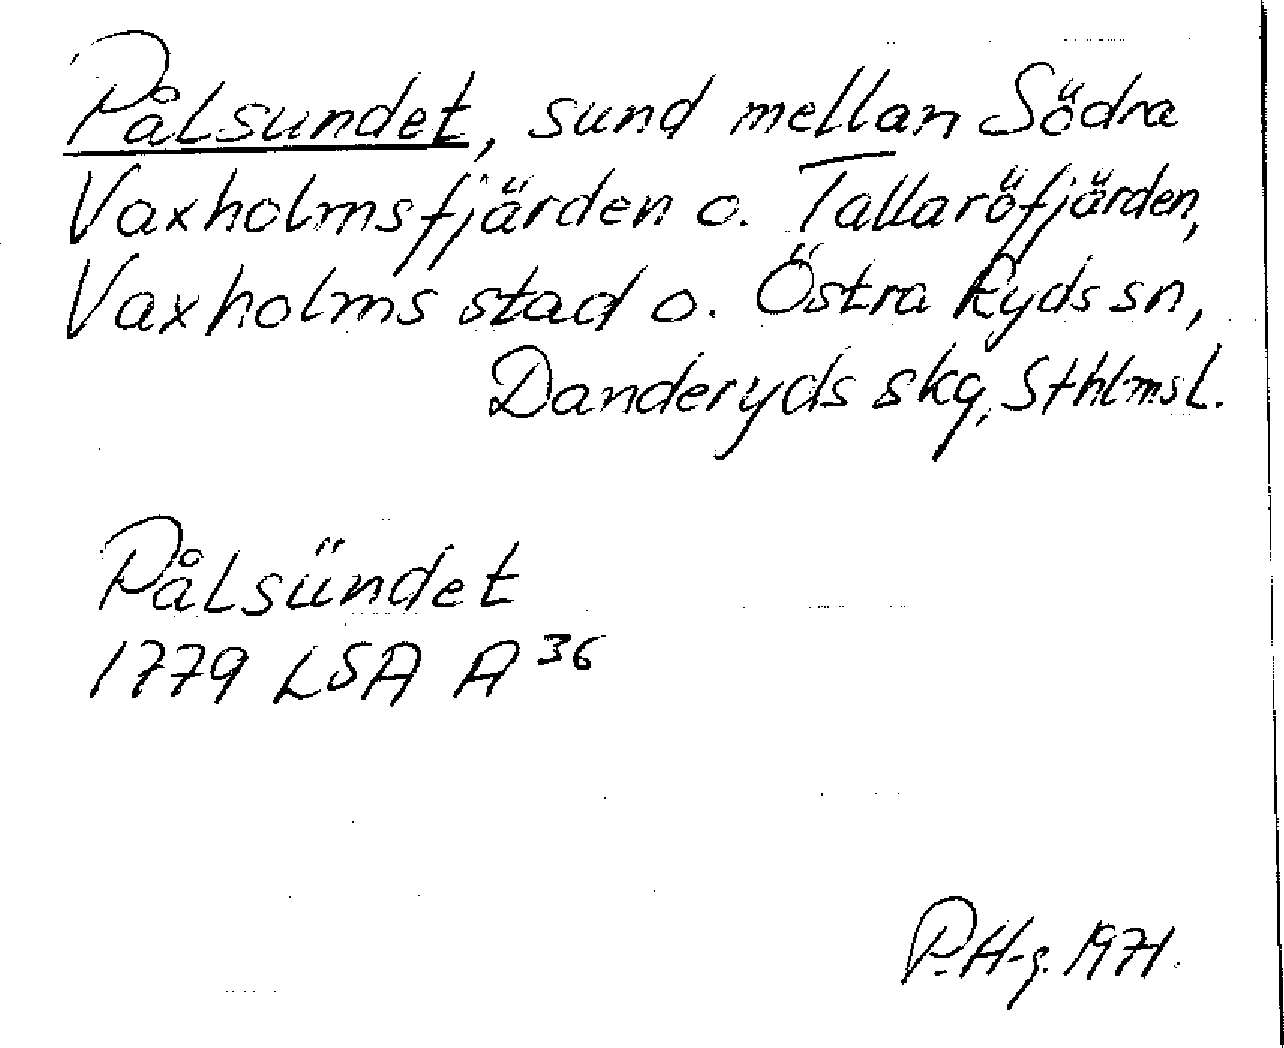 Pålsundet, sund mellan Södra
Vaxholmsfjärden o. Tallaröfjärden,
Vaxholms stad o. Östra Ryds sn,
Danderyds skg, Sthlms L.
Pålsündet
1779 LSA A 36
P. H-g. 1971.